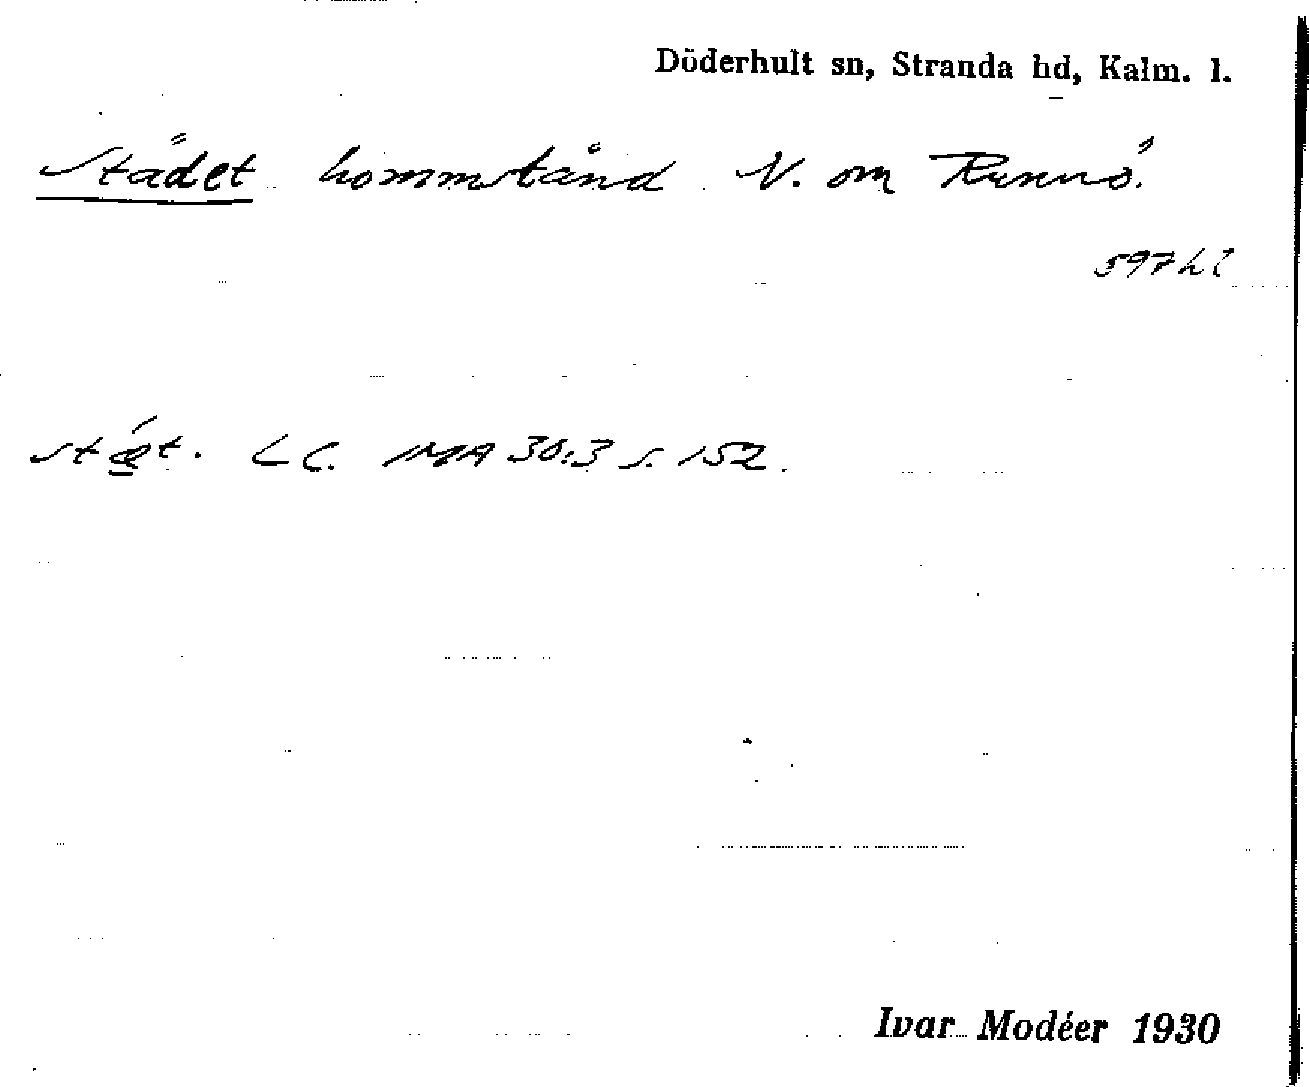 Döderhult sn, Stranda hd, Kalm. l.
Städet hommstånd N. om Runnö.
597 h ?
stǽ̱t. LC. MA 30:3 s. 152.
Ivar Modéer 1930